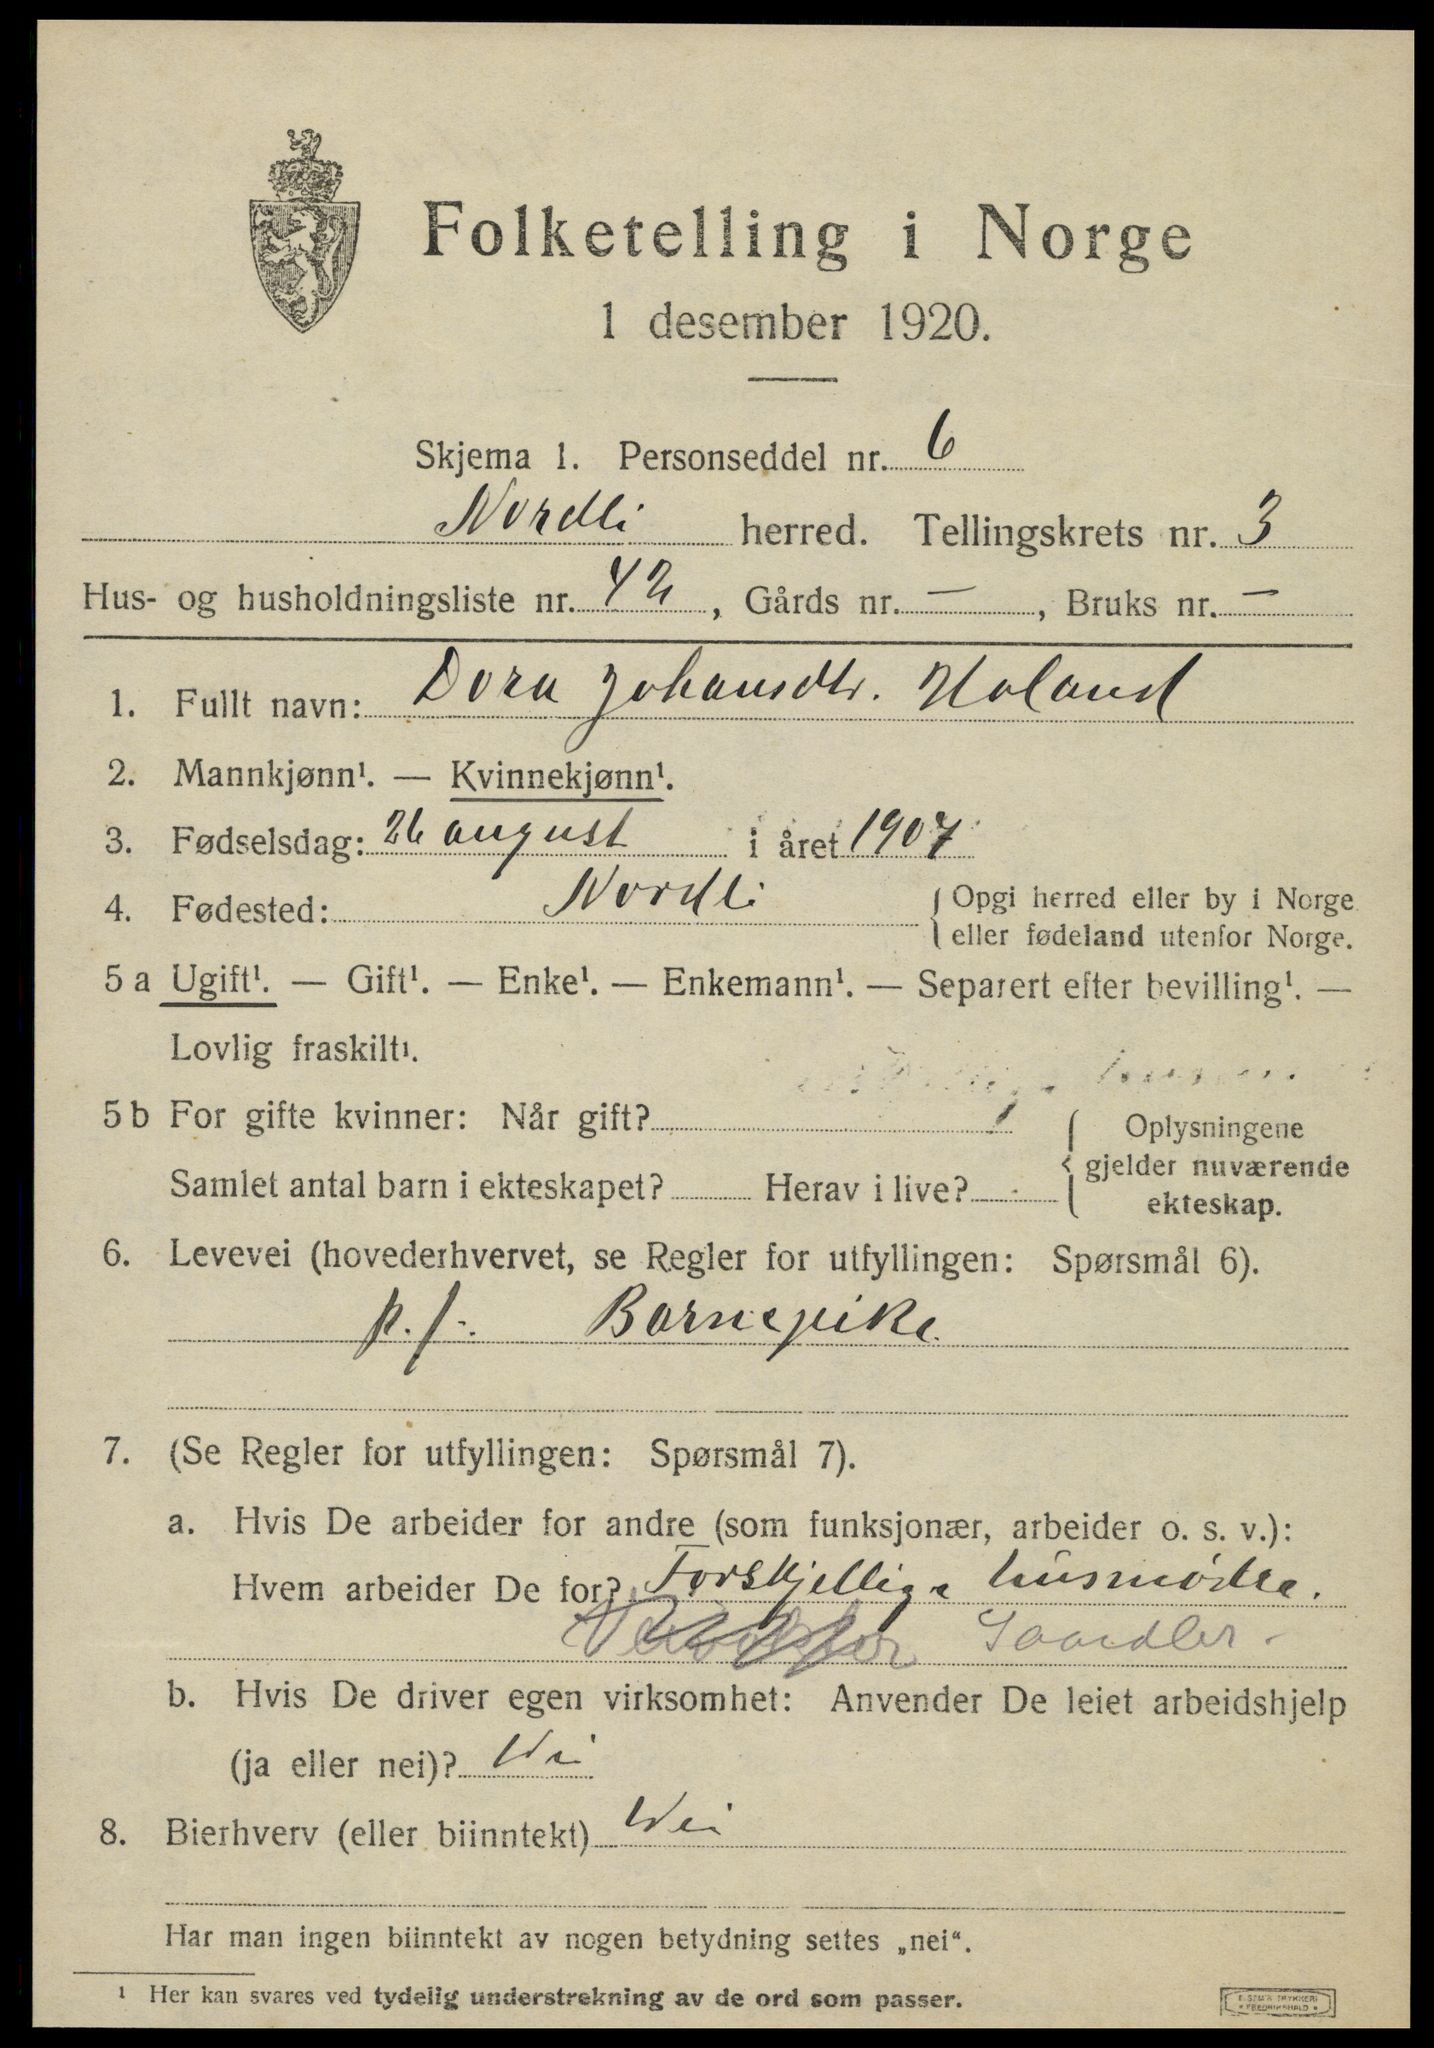 Folketelling i Norge
1 desember 1920.
Skjema 1. Personseddel nr. 6
Nordli herred. Tellingskrets nr. 3
Hus- og husholdningsliste nr. 42, Gårds nr. —, Bruks nr. —
1. Fullt navn: Dora Johansdtr. Holand
2. Mannkjønn¹. — Kvinnekjønn¹.
3. Fødselsdag: 26 august i året 1907
4. Fødested: Nordli { Opgi herred eller by i Norge
eller fødeland utenfor Norge.
5 a Ugift¹. — Gift¹. — Enke¹. — Enkemann¹. — Separert efter bevilling¹. —
Lovlig fraskilt¹.
5 b For gifte kvinner: Når gift? { Oplysningene
gjelder nuværende
Samlet antal barn i ekteskapet? Herav i live?
ekteskap.
6. Levevei (hovederhvervet, se Regler for utfyllingen: Spørsmål 6).
p. f. Barnepike.
7. (Se Regler for utfyllingen: Spørsmål 7).
a. Hvis De arbeider for andre (som funksjonær, arbeider o. s. v.):
Hvem arbeider De for? Forskjellige husmødre.
b. Hvis De driver egen virksomhet: Anvender De leiet arbeidshjelp
(ja eller nei)? Nei
8. Bierhverv (eller biinntekt) Nei
Har man ingen biinntekt av nogen betydning settes „nei“.
¹ Her kan svares ved tydelig understrekning av de ord som passer.